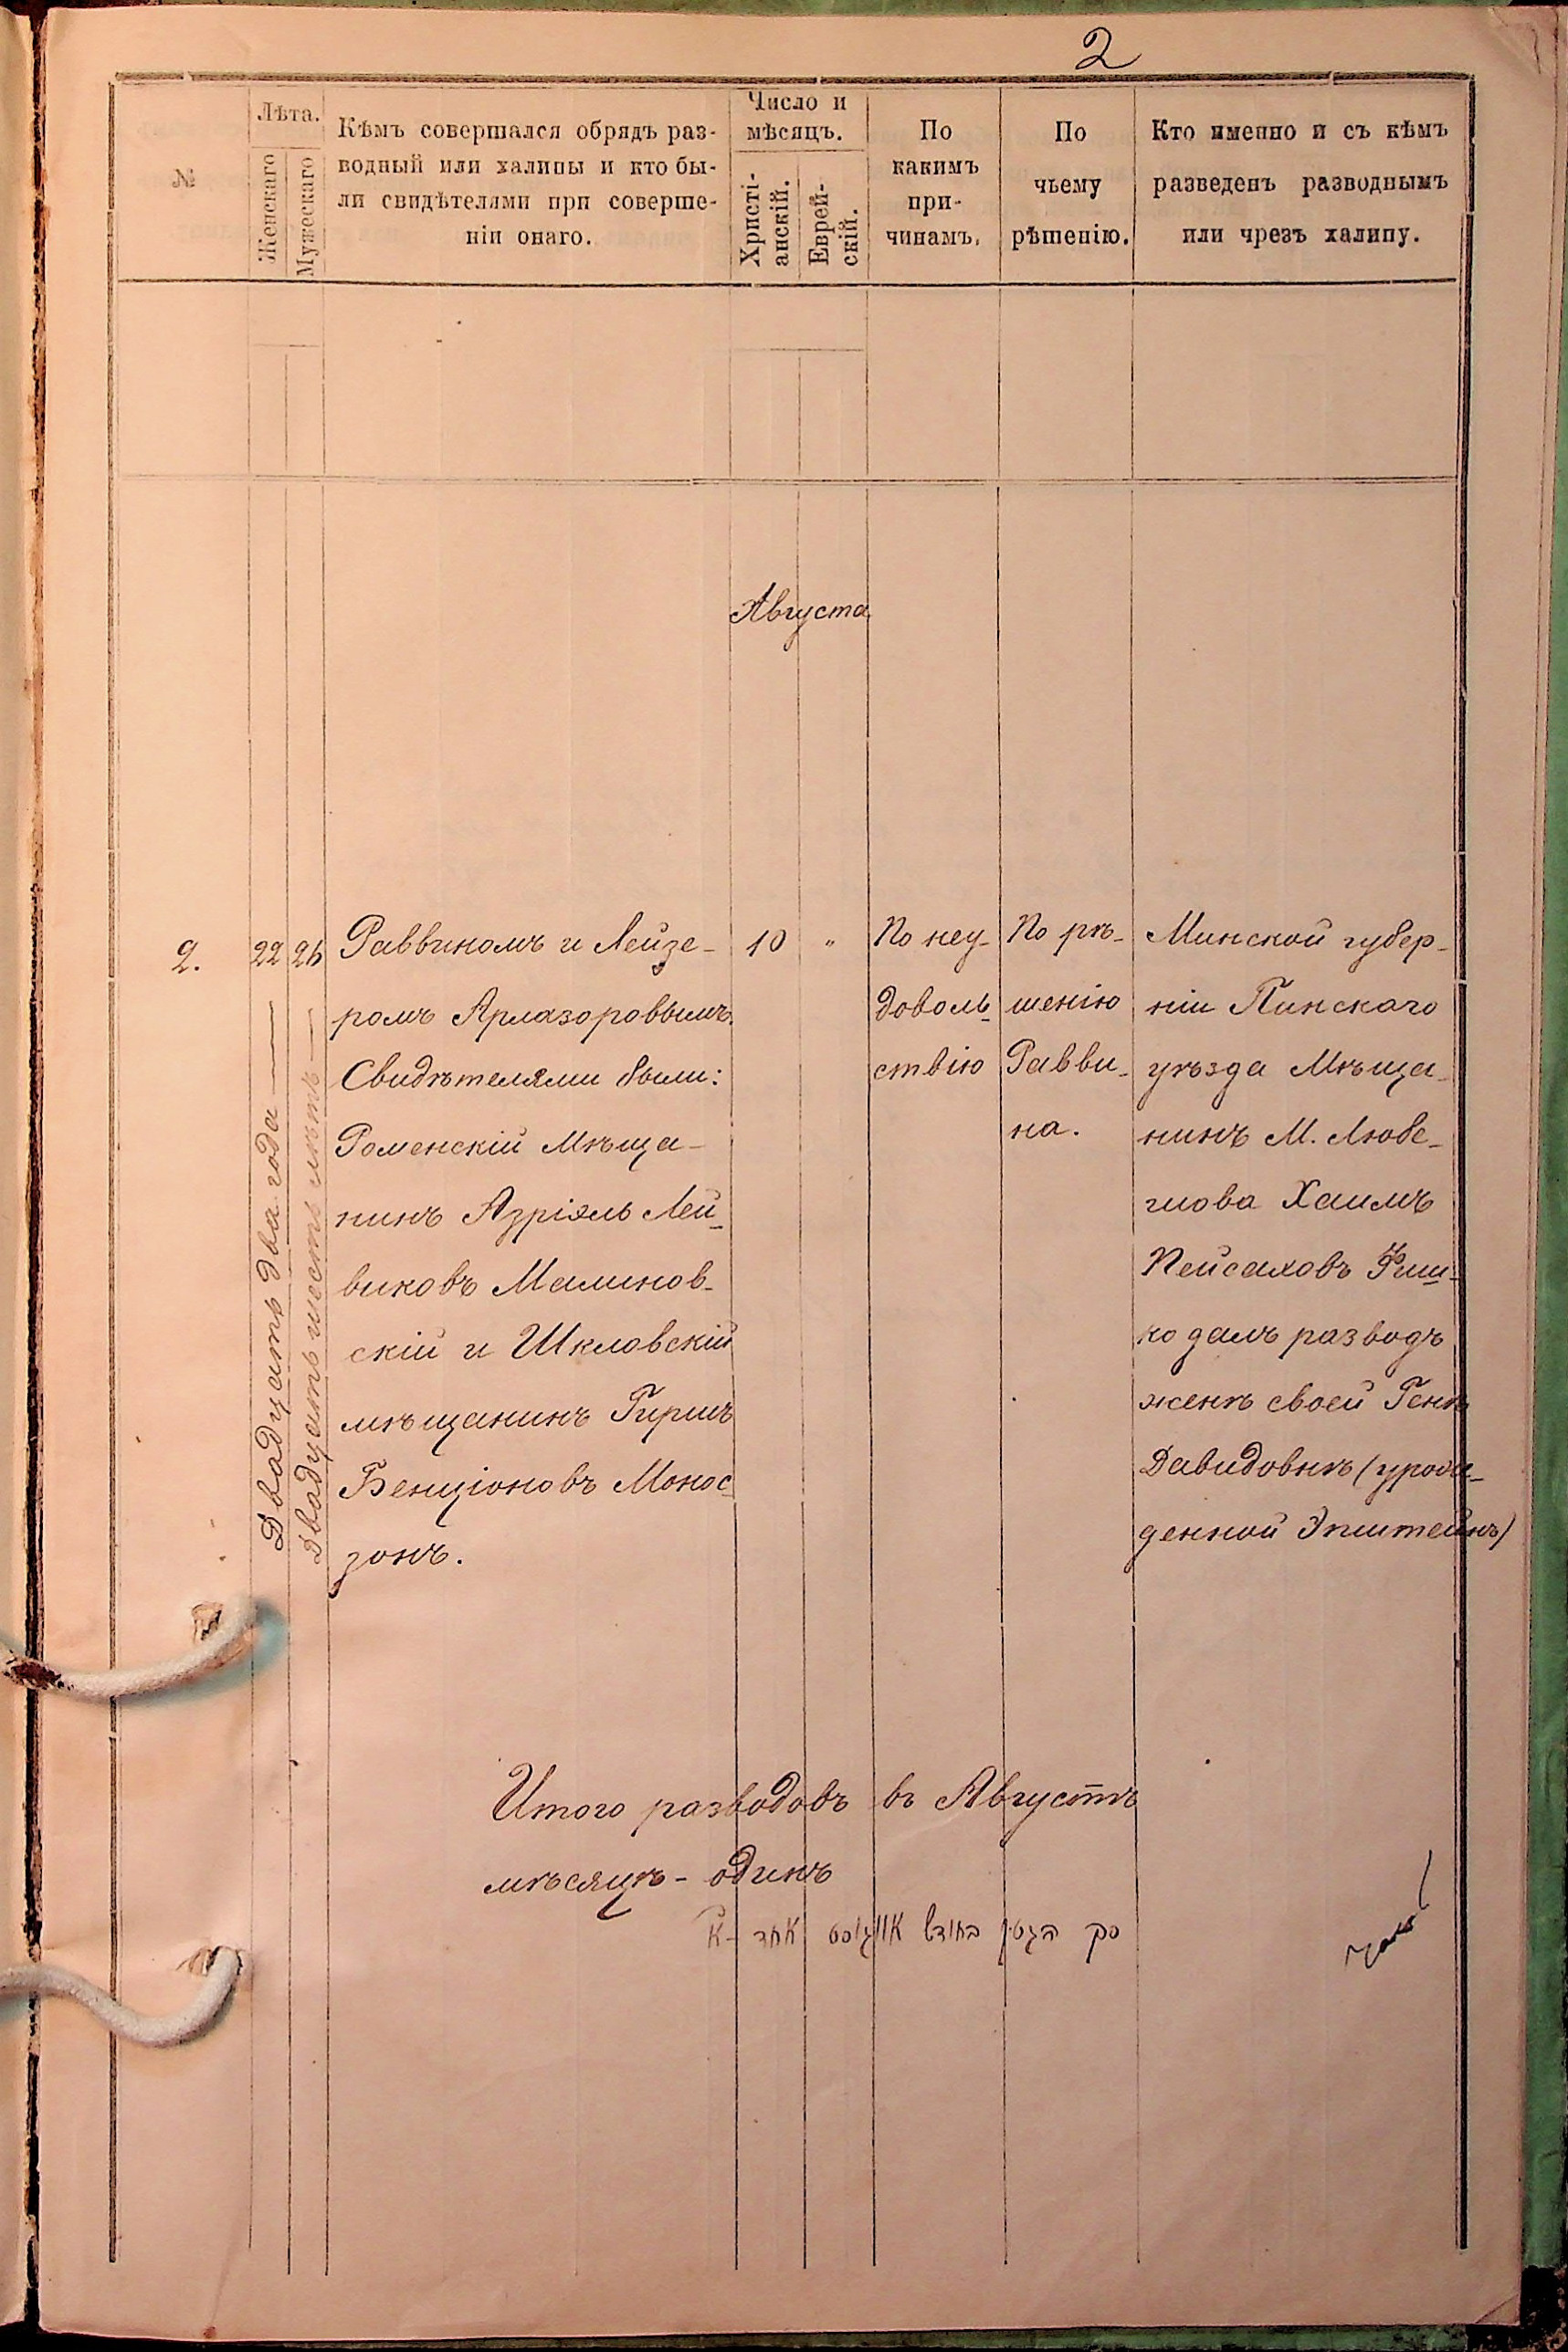 2
№
Лѣта.
Женскаго
Мужескаго
Кѣмъ совершался обрядъ раз-
водный или халицы и кто бы-
ли свидѣтелями при соверше-
ніи онаго.
Число и
мѣсяцъ.
Христі-
анскій.
Еврей-
скій.
По
какимъ
при-
чинамъ.
По
чьему
рѣшенію.
Кто именно и съ кѣмъ
разведенъ разводнымъ
или чрезъ халицу.
Августа
2.
22
Двадцать два года
26
Двадцать шесть лѣтъ
Раввиномъ и Лейзе-
ромъ Арлазоровымъ.
Свидѣтелями были:
Роменскій Мѣща-
нинъ Азріэль Лей-
виковъ Малинов-
скій и Шкловскій
мѣщанинъ Гиршъ
Бенціоновъ Монос-
зонъ.
10
"
По неу-
доволь-
ствію
По рѣ-
шенію
Равви-
на.
Минской губер-
ніи Пинскаго
уѣзда Мѣща-
нинъ М. Любе-
шова Хаимъ
Пейсаховъ Фиш-
ко далъ разводъ
женѣ своей Генѣ
Давидовнѣ (урож-
денной Эпштейнъ)
Итого разводовъ въ Августѣ
мѣсяцѣ - одинъ
סק הגטין בחודש אווגוסט אחד - א